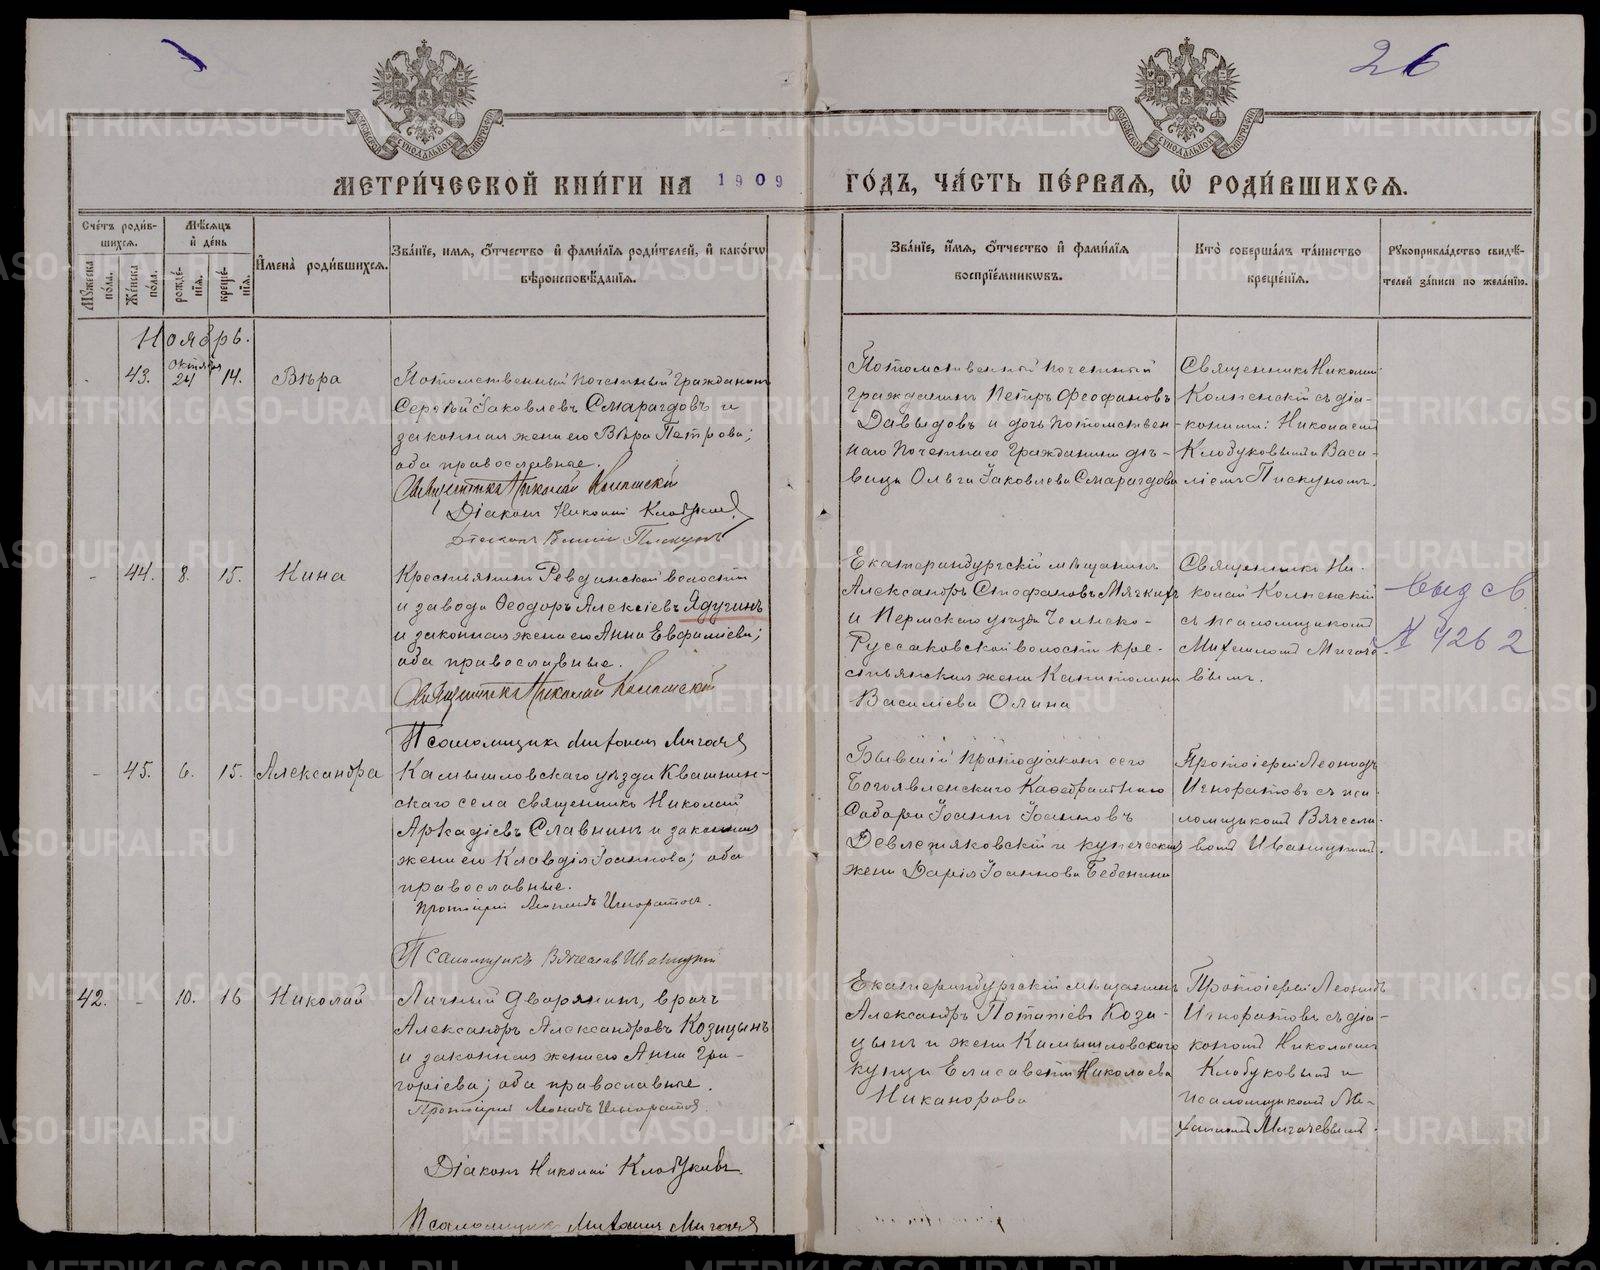 26
МЕТРИ́ЧЕСКОЙ КНИ́ГИ НА 1909 ГО́ДЪ, ЧА́СТЬ ПЕ́РВАЯ, Ѡ РОДИ́ВШИХСЯ.
Сче́тъ роди́вшихся.
Мꙋ́жеска по́ла.
Же́нска по́ла.
Мѣ́сяцъ и де́нь
рожде́нїя.
креще́нїя.
И҆мена̀ роди́вшихся.
Зва́нїе, имя, ѻ҆́тчество и҆ фами́лїя роди́телей, и҆ како́гѡ
вѣроисповѣ́данїя.
Зва́нїе, и҆́мя, ѻ҆́тчество и҆ фами́лїя
воспрїе́мникѡвъ.
Кто̀ соверша́лъ та́инство
креще́нїя.
Рꙋкоприкла́дство свидѣ́-
телей за́писи по жела́нїю.
Ноябрь.
43.
Октября
24
14.
Вѣра
Потомственный почетный гражданинъ
Сергѣй Іаковлевъ Смарагдовъ и
законная жена его Вѣра Петрова;
оба православные.
Священникъ Николай Колпенскій
Діаконъ Николай Клобуковъ
Діаконъ Пискунъ
Потомственный почетный
гражданинъ Петръ Феофановъ
Давыдовъ и дочь потомствен-
наго почетнаго гражданина дѣ-
вица Ольга Іаковлева Смарагдова
Священникъ Николай
Колпенскій съ діа-
конами: Николаемъ
Клобуковымъ и Васи-
ліемъ Пискуномъ.
44.
8.
15.
Нина
Крестьянинъ Ревдинской волости
и завода Ѳеодоръ Алексіевъ Ядугинъ
и законная жена его Анна Евфиміева;
оба православные.
Священникъ Николай Колпенскій
Псаломщикъ
Екатеринбургскій мѣщанинъ
Александръ Стефановъ Мягкихъ
и Пермскаго уѣзда
волости кре-
стьянская жена Капитолина
Василіева
Священникъ Ни-
колай Колпенскій
съ псаломщикомъ
Выд св
№ 4262
45.
6.
15.
Александра
Камышловскаго уѣзда Квашнин-
скаго села священникъ Николай
Аркадіевъ Славнинъ и законная
жена его Клавдія Іоаннова; оба
православные.
Протоіерей Леонидъ Игноратовъ.
Псаломщикъ Вячеславъ Иваницкій
Бывшій протодіаконъ сего
Богоявленскаго Кафедральнаго
Собора Іоаннъ Іоанновъ
Девлетяковскій и купеческая
жена Дарія Іоаннова Бебенина
Протоіерей Леонидъ
Игноратовъ съ пса-
ломщикомъ Вячесла-
вомъ Иваницкимъ.
42.
10.
16
Николай
Личный дворянинъ, врачъ
Александръ Александровъ Козицынъ
и законная жена его Анна Гри-
горіева; оба православные.
Протоіерей Леонидъ Игноратовъ.
Діаконъ Николай Клобуковъ
Псаломщикъ
Екатеринбургскій мѣщанинъ
Александръ Потапіевъ Кози-
цынъ и жена Камышловскаго
купца Елисавета Николаева
Никанорова
Протоіерей Леонидъ
Игноратовъ съ діа-
кономъ Николаемъ
Клобуковымъ и
псаломщикомъ Ми-
METRIKI.GASO-URAL.RU